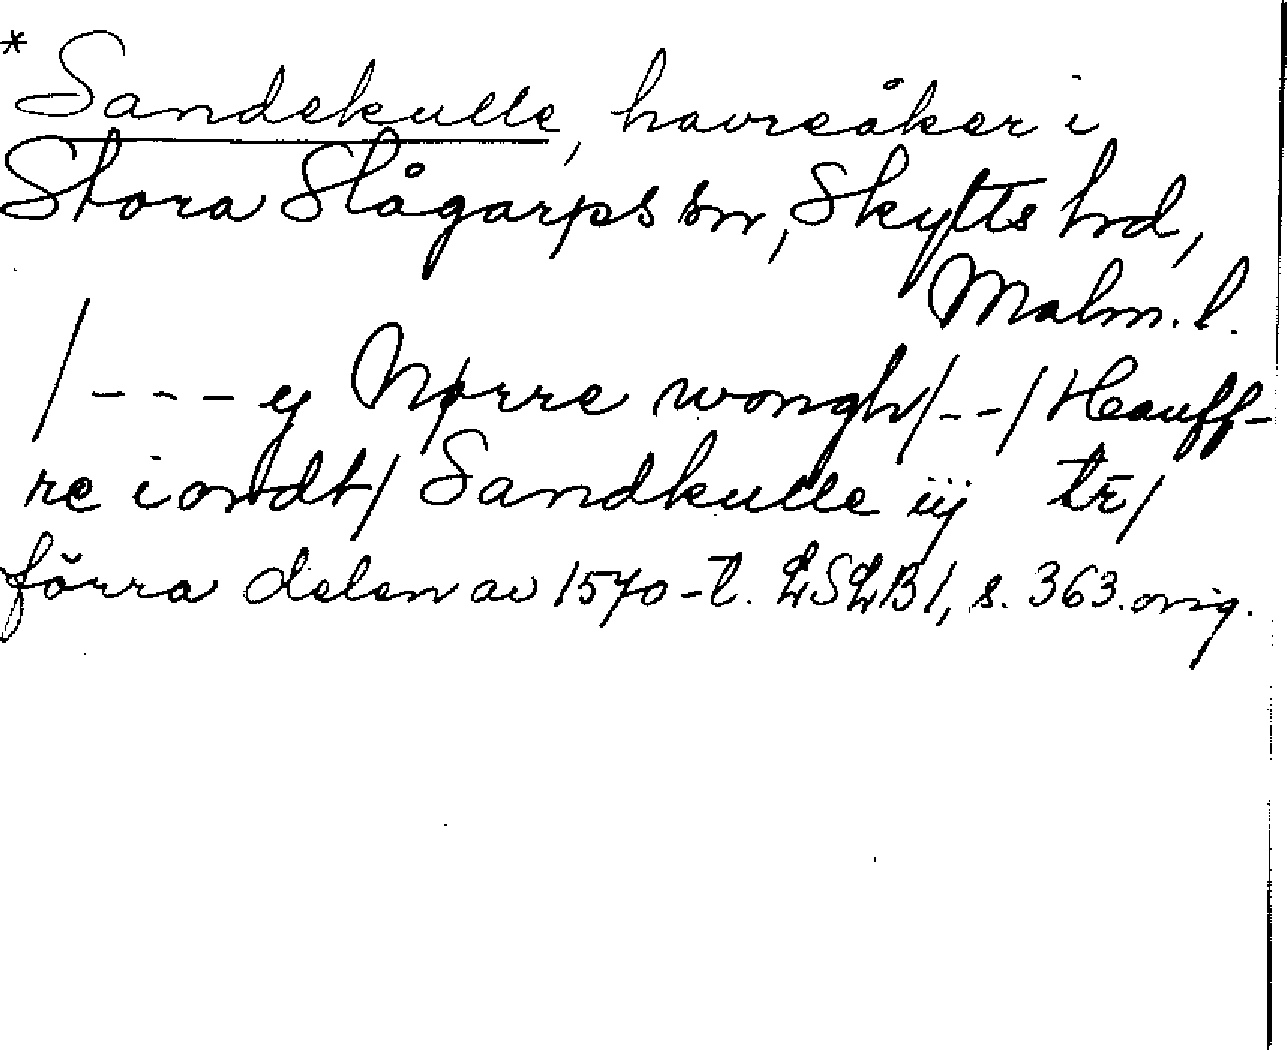 *Sandekulle, havreåker i
Stora Slågarps sn, Skytts hrd,
Malm. l.
/---ij Nørre wongh/--/Hauff-
re iordt/ Sandkulle iij tr̄/
förra delen av 1570-t. LSLB1, s. 363. orig.